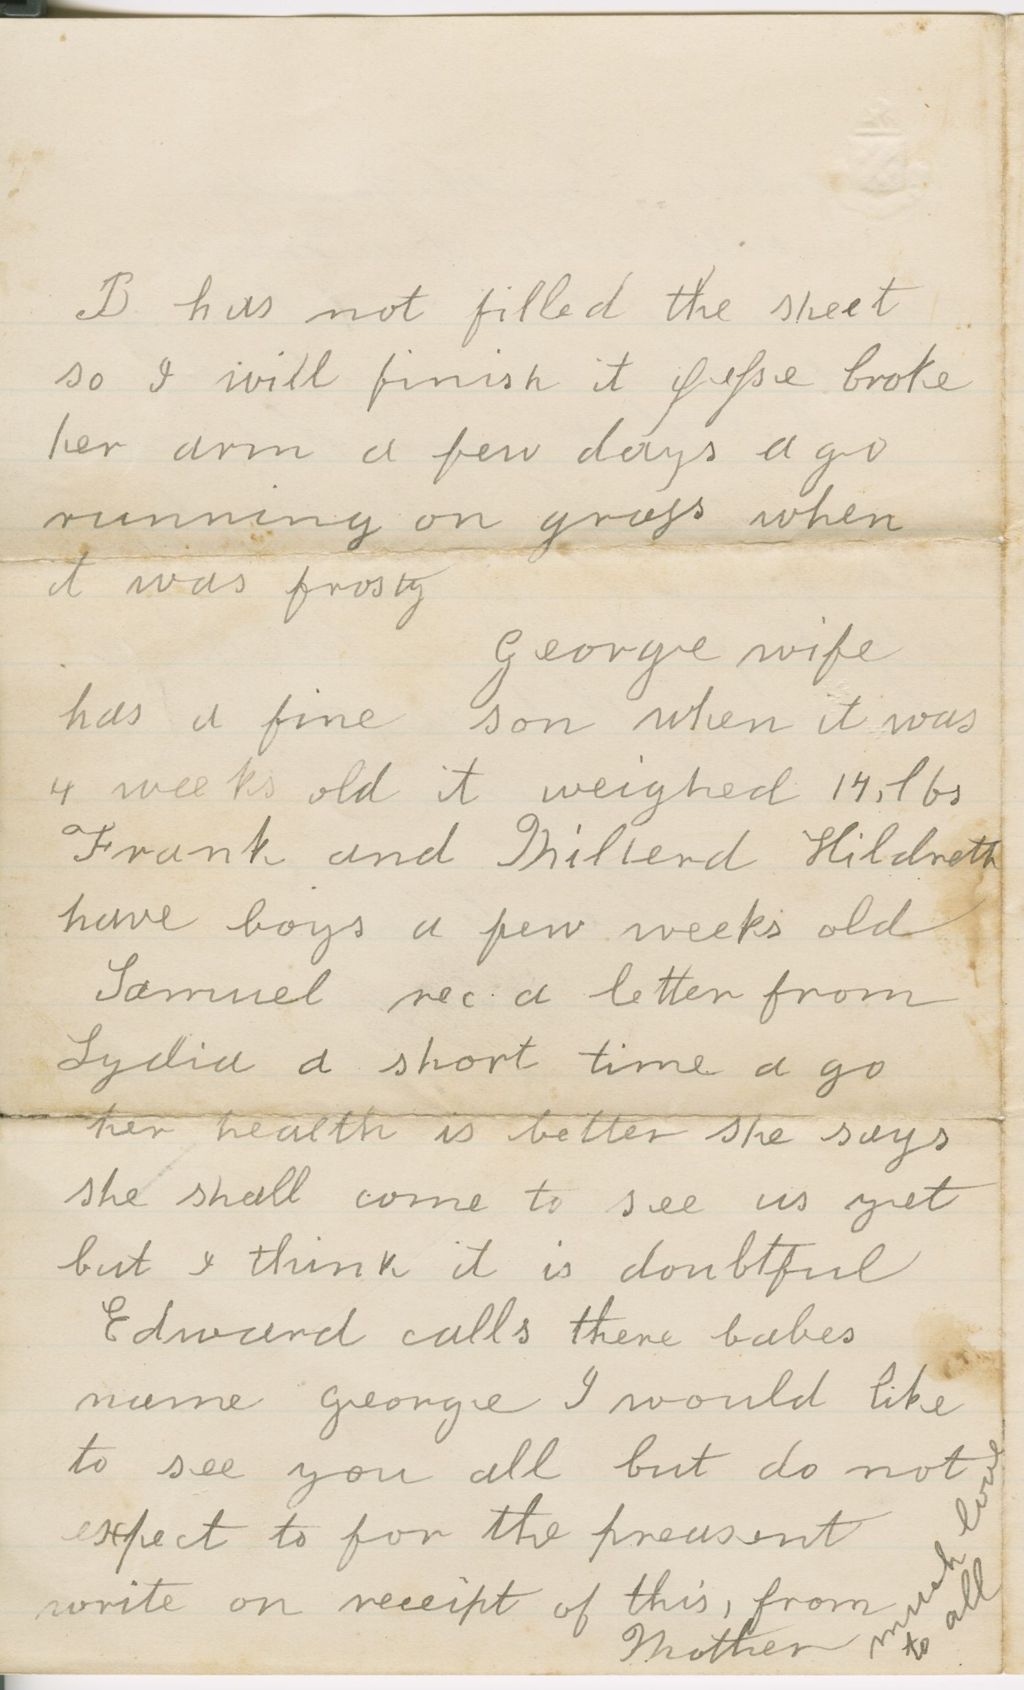 B has not filled the sheet
so I will finish it Jesse broke
her arm a few days a go
running on grass when
it was frosty
George wife
has a fine son when it was
4 weeks old it weighed 14, lbs
Frank and Millerd Hildreth
have boys a few weeks old
Samuel rec. a letter from
Lydia a short time a go
her health is better she says
she shall come to see us yet
but I think it is doubtful
Edward calls there babes
name George I would like
to see you all but do not
expect to for the preasent
write on receipt of this, from
Mother
much love
to all